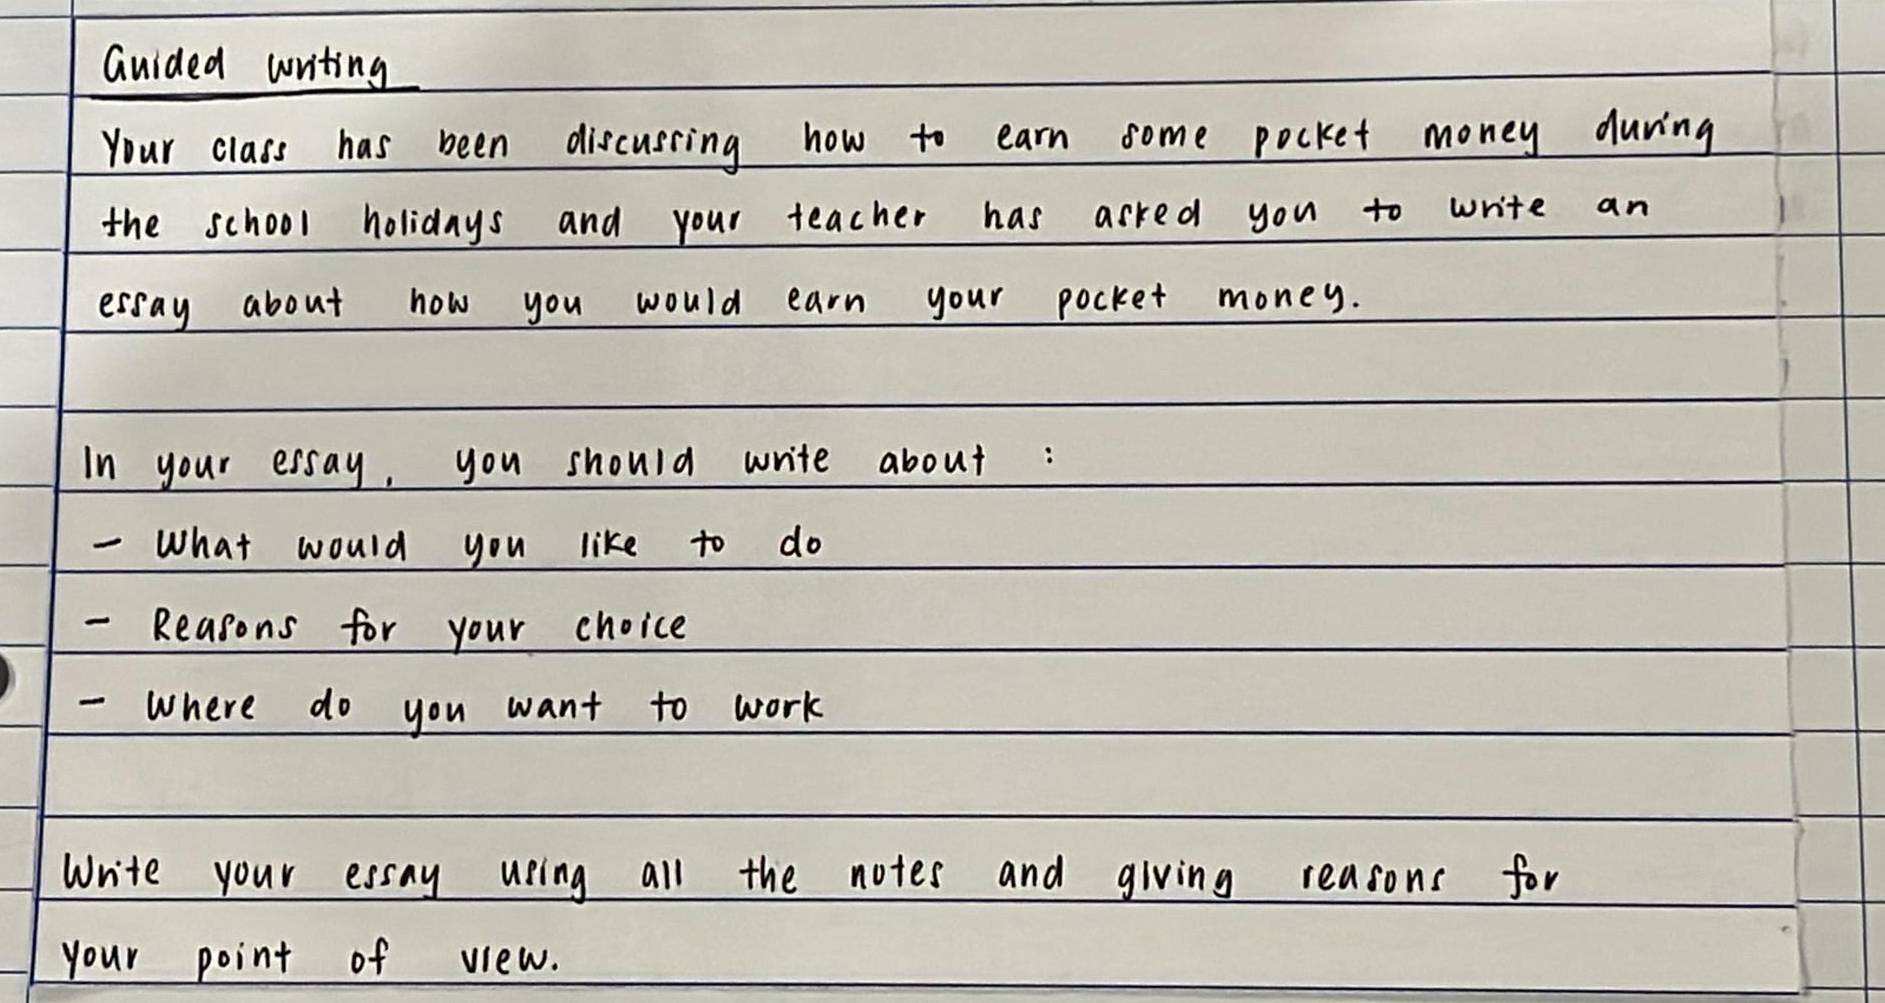 Guided writing
Your class has been discussing how to earn some pocket money during
the school holidays and your teacher has asked you to write an
essay about how you would earn your pocket money.
In your essay, you should write about :
- What would you like to do
- Reasons for your choice
- Where do you want to work
Write your essay using all the notes and giving reasons for
your point of view.